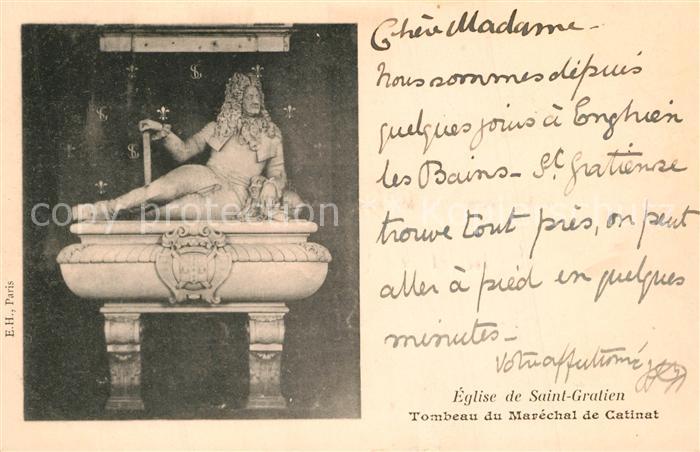 Chère Madame -
Nous sommes dépuis
quelques jours à Enghien
les Bains - St. Gratien se
trouve tout près, on peut
aller à pied en quelques
minutes -
Votre affectionné
Église de Saint-Gratien
Tombeau du Maréchal de Catinat
E.H., Paris
copy protection